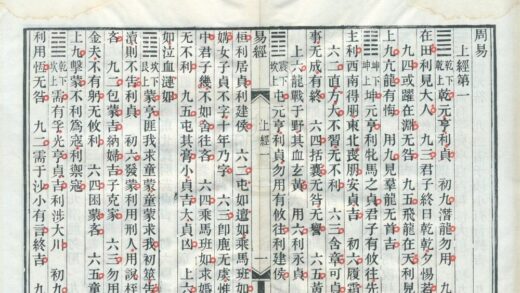 周易
上經第一
䷀乾下乾上 乾元亨利貞 初九潛龍勿用 九
在田利見大人 九三君子終日乾乾夕惕若
九四或躍在淵无咎 九五飛龍在天利見
上九亢龍有悔 用九見羣龍无首吉
䷁坤下坤上 坤元亨利牝馬之貞君子有攸往先
主利西南得朋東北喪朋安貞吉 初六履霜
六二直方大不習无不利 六三含章可貞
事无成有終 六四括囊无咎无譽 六五黃
上六龍戰于野其血玄黃 用六利永貞
䷂震下坎上 屯元亨利貞勿用有攸往利建侯
易經 上經一 一
桓利居貞利建侯 六二屯如邅如乘馬班如
媾女子貞不字十年乃字 六三卽鹿无虞惟
中君子幾不如舍往吝 六四乘馬班如求婚
无不利 九五屯其膏小貞吉大貞凶 上六
如泣血漣如
䷃坎下艮上 蒙亨匪我求童蒙童蒙求我初筮告
瀆則不告利貞 初六發蒙利用刑人用說桎
吝 九二包蒙吉納婦吉子克家 六三勿用
金夫不有躬无攸利 六四困蒙吝 六五童
上九擊蒙不利爲寇利禦寇
䷄乾下坎上 需有孚光亨貞吉利涉大川 初九
利用恆无咎 九二需于沙小有言終吉 九